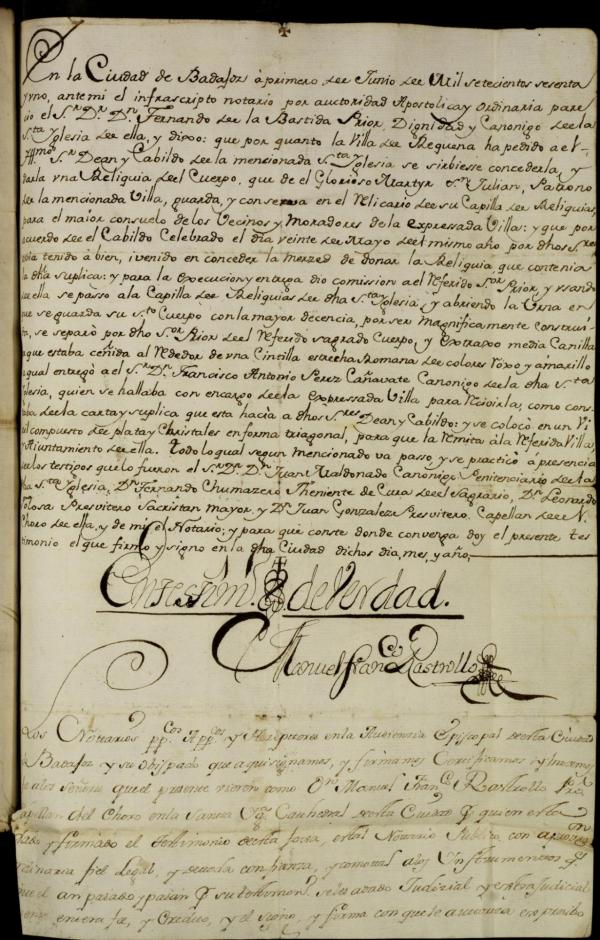 En la Ciudad de Badajoz à primero de Junio de Mil setecientos sesenta
y vno, ante mi el infrascripto notario por auctoridad Apostolica y ordinaria pare
cio el Sr. Dr. Dn. Fernando de la Bastida Prior, Dignidad y Canonigo de la
Sta. Yglesia de ella, y dixo: que por quanto la Villa de Requena ha pedido a el
Yllmo. Sr. Dean y Cabildo de la mencionada Sta. Yglesia se sirbiesse concederla, y
darla vna Reliquia del Cuerpo, que de el Glorioso Martyr Sn. Julian, Patrono
de la mencionada Villa, guarda, y conserva en el Relicario de su Capilla de Reliquias,
para el maior consuelo de los Vecinos y Moradores de la expressada Villa: y que por
acuerdo de el Cabildo Celebrado el dia veinte de Mayo del mismo año por dhos Sres.
tenido à bien, venido en conceder la Merzed de donar la Reliquia, que contenia
la dha suplica: y para la execucion y entrega dio comission a el Referido Sor. Prior, y vsando
de ella se passo à la Capilla de Reliquias de dha Sta. Yglesia, y abriendo la Vrna en
que se guarda su Sto. Cuerpo con la mayor decencia, por ser magnificamente construi
da, se separò por dho Sor. Prior de el Referido sagrado Cuerpo, y extraxo media Canilla
que estaba ceñida al Rededor de vna Cintilla estrecha Romana de colores Roxo y amarillo
qual entregò a el Sr. Dn. Francisco Antonio Perez Cañavate Canonigo de la dha Sta.
Yglesia, quien se hallaba con encargo de la expressada Villa para Recivirla, como cons
taba de la carta y suplica que esta hacia a dhos Sres. Dean y Cabildo: y se colocò en un Vi
ril compuesto de plata y Christales en forma triagonal, para que la Remita à la Referida Villa,
y Aiuntamiento de ella. Todo lo qual segun mencionado va passo, y se practicò à presencia
de los testigos que lo fueron el Sr. Dr. Dn. Juan Maldonado Canonigo Penitenciario de la
dha Sta. Yglesia, Dn. Fernando Chumazero Theniente de Cura de el Sagrario, Dn. Leonardo
Tolosa Presvitero Sacristan Mayor, y Dn. Juan Gonzalez Presvitero, Capellan de
Choro de ella, y de mi el Notario; y para que conste donde convenga doy el presente tes
timonio el que firmo y signo en la dha Ciudad dichos dia, mes, y año,
En testim. de Verdad.
Manuel Franco. Rastrollo
Los Notarios ppcos. Appcos. y en la Audiencia Episcopal de esta Ciudad
Badajoz y su obispado que aqui signamos, y firmamos Certificamos y hacemos
a los señores que el presente vieren como Dn. Manuel Franco. Rastrollo
Capellan del Choro en la Santa Yga. Cathedral de esta Ciudad por quien esta
y firmado el Testimonio de esta foxa, es tal Notario Publico con
ordinaria fiel Legal, y de toda confianza, y como tal a los Instrumentos q.
an pasado, y pasan por su testimon. se les a dado Judicial y extra Judicial
entera fee, y Credito, y el signo, y firma con que le autoriza